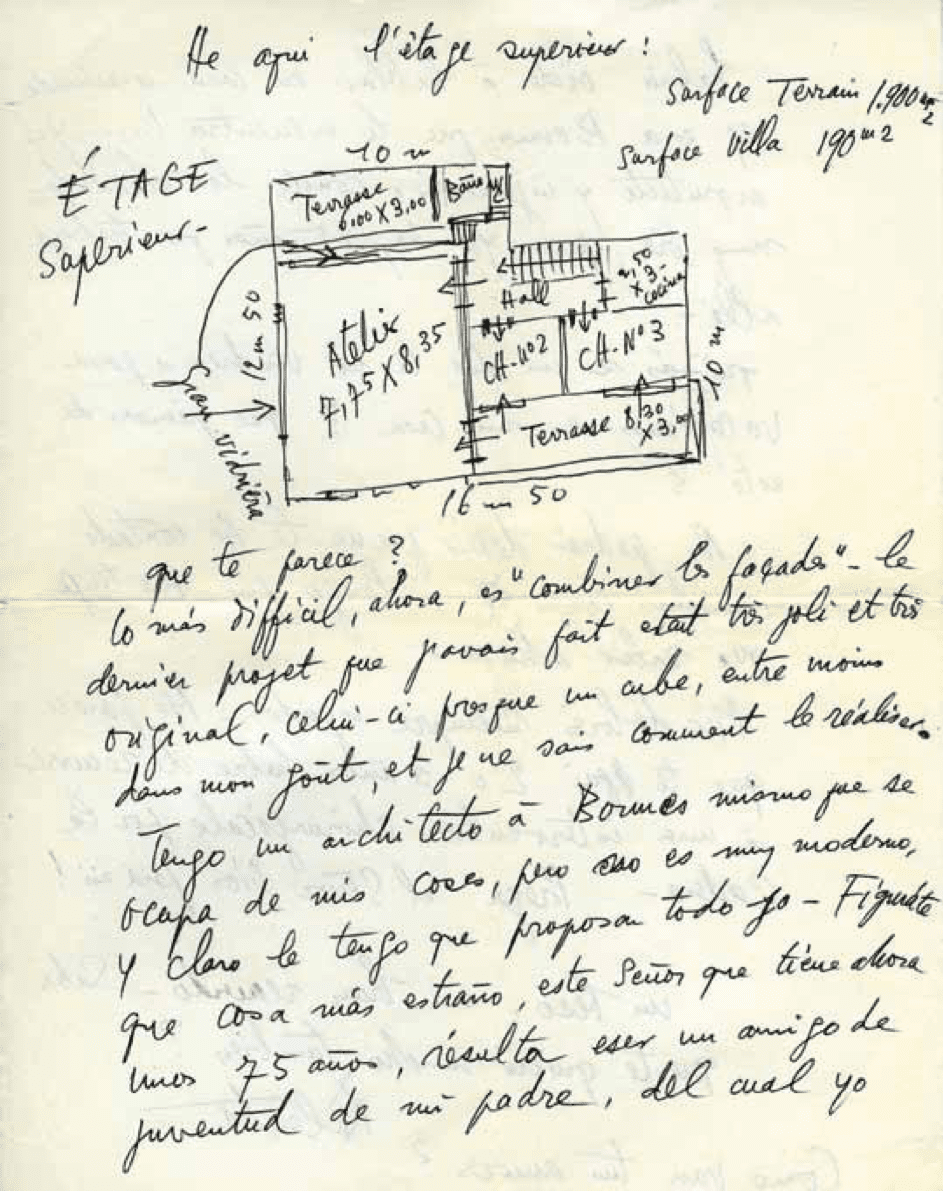 He aqui l'étage superieur !
Surface Terrain 1.900 m2
Surface Villa 190 m2
ÉTAGE
Superieur-
10 m
Terrasse
6,00 X 3,00
Baño
WC
12 m 50
Gran vidriéra
Atelier
7,75 X 8,35
Hall
2,50
X 3-
cocina
CH-Nº2
CH-Nº3
10 m
Terrasse 8,30
X 3,00
16 m 50
que te parece ?
lo más difficil, ahora, es "combiner les façades" - le
dernier projet que j'avais fait etait très joli et très
original, celui-ci presque un cube, entre moins
dans mon goût, et je ne sais comment le réaliser.
Tengo un architecto à Bormes mismo que se
ocupa de mis coses, pero no es muy moderno,
y claro le tengo que proposan todo yo - Figuráte
que cosa más estraño, este Señor que tiène ahora
unos 75 años, résulta eser un amigo de
juventud de mi padre, del cual yo